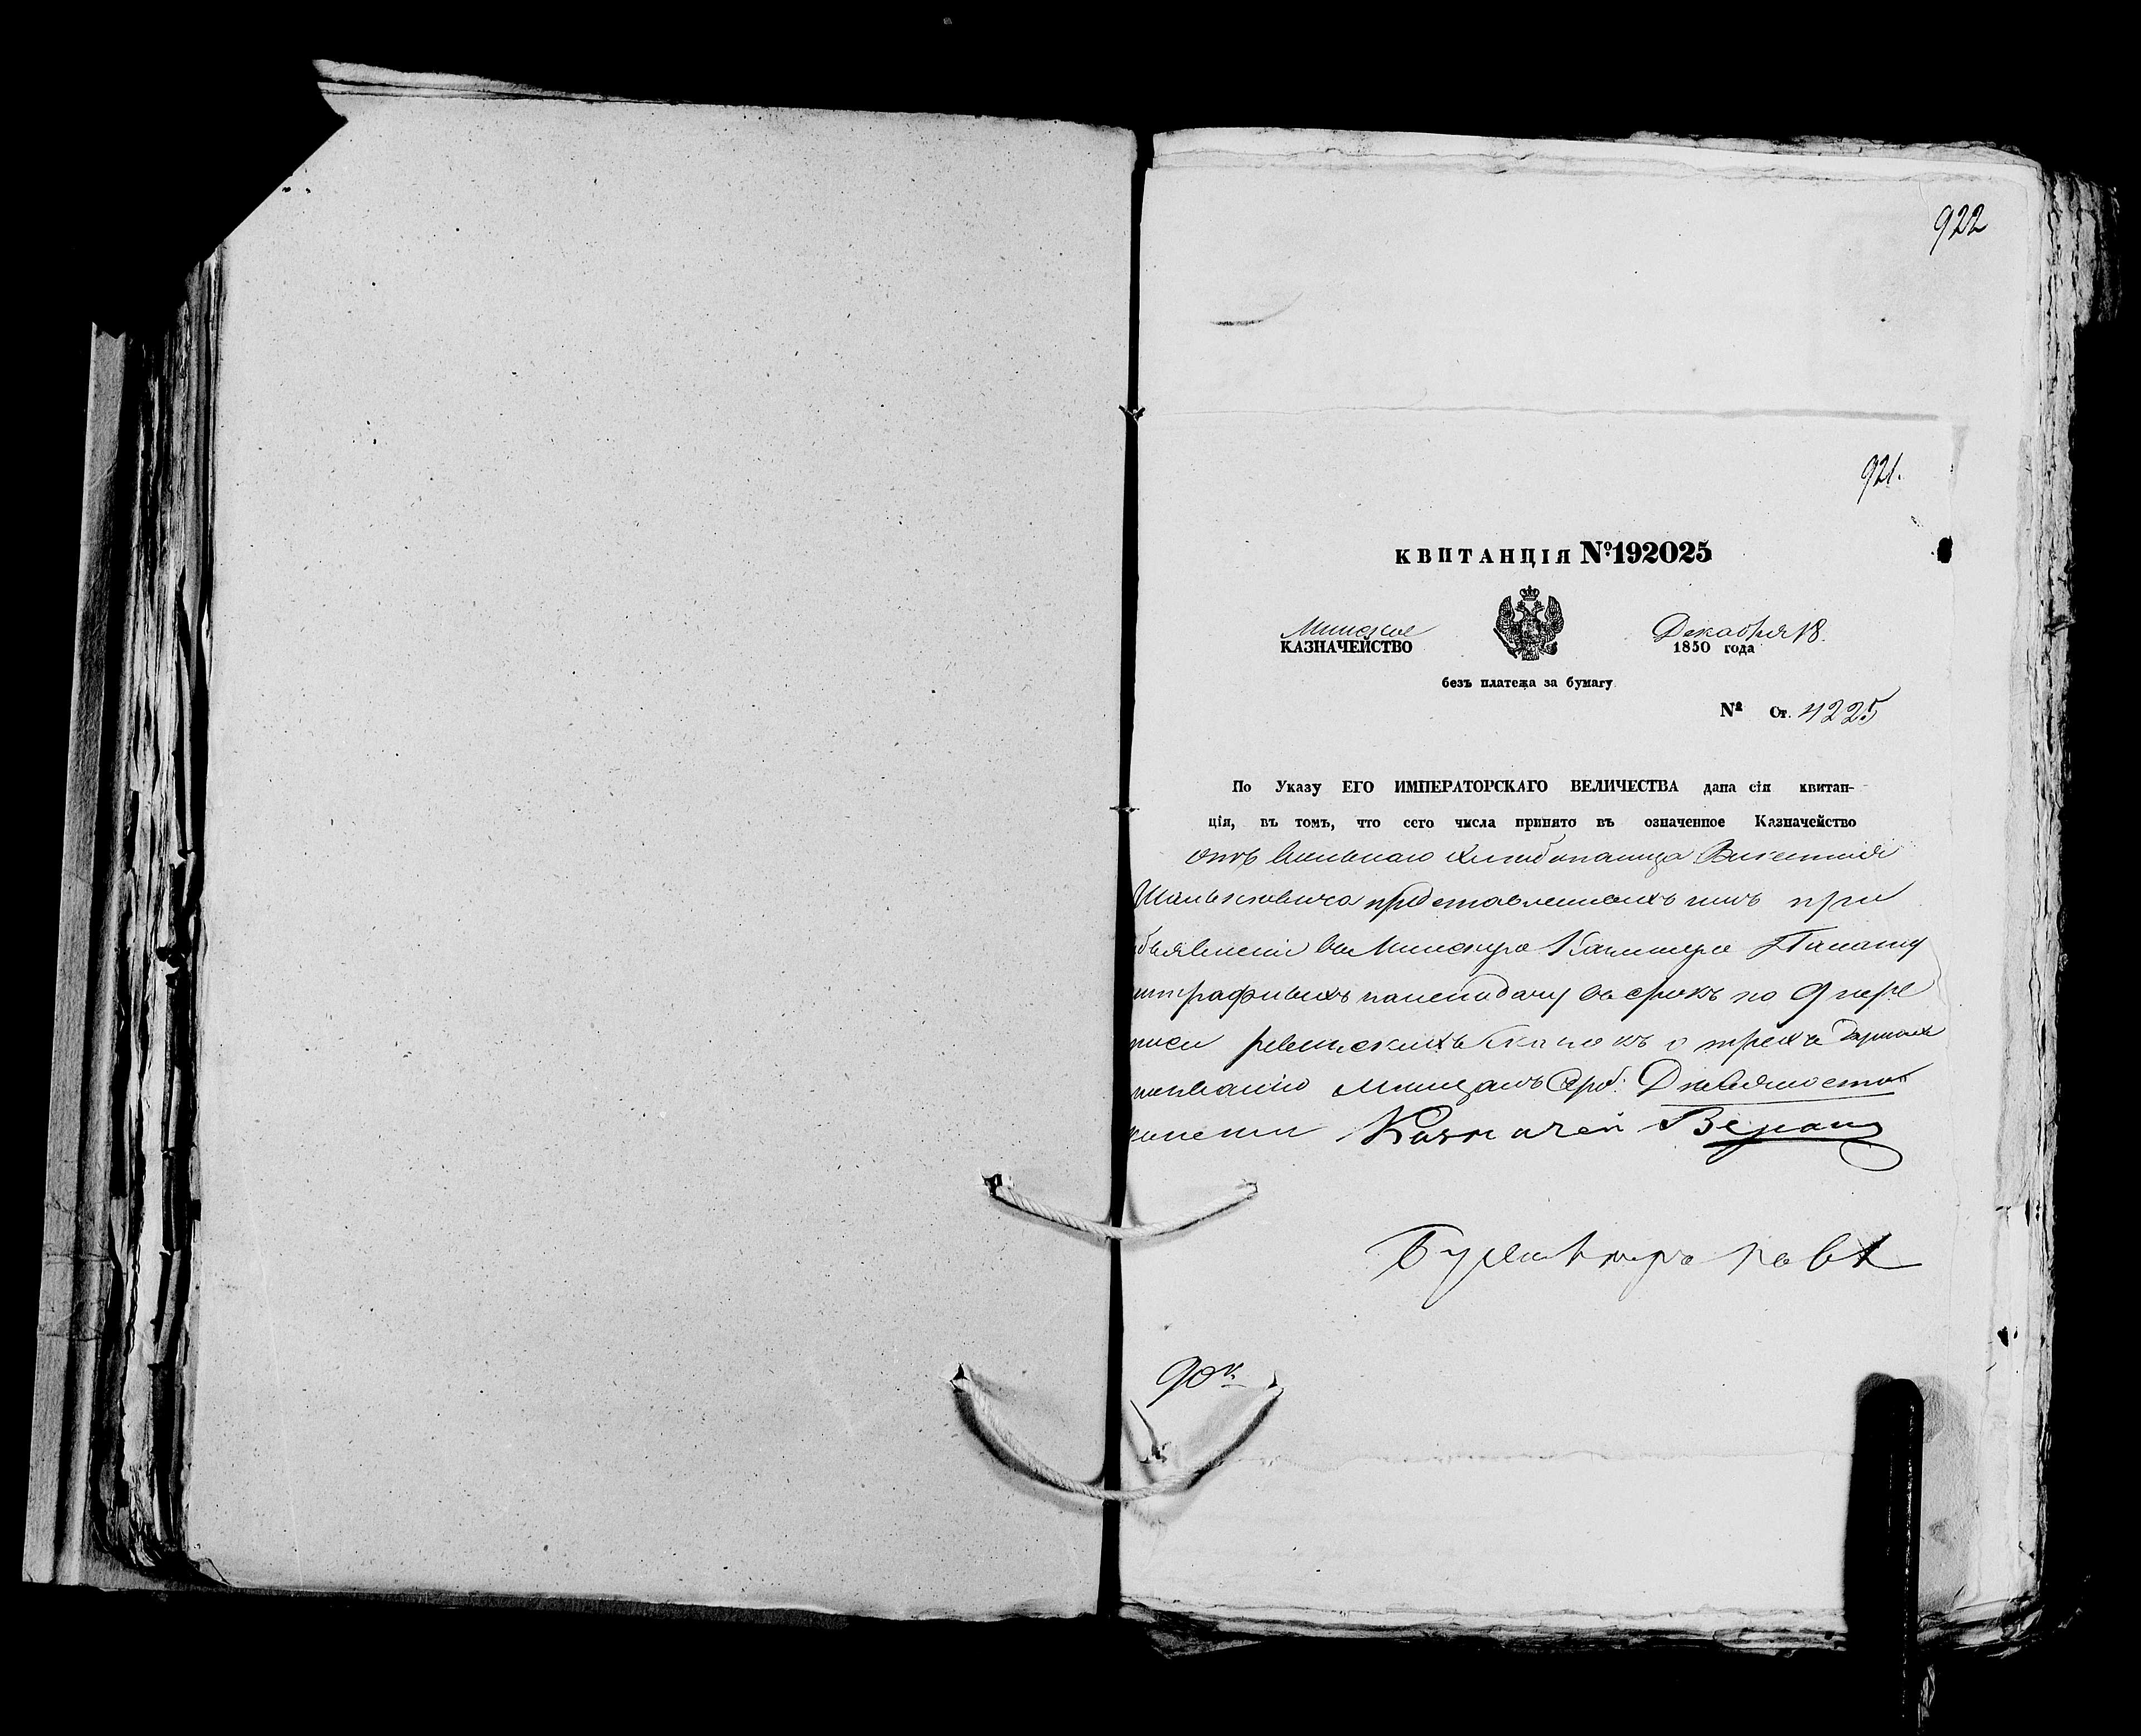 922
921.
КВИТАНЦІЯ №192025
Минское
КАЗНАЧЕЙСТВО
Декабря 18.
1850 года
безъ платежа за бумагу
№ Ст. 4225
По Указу ЕГО ИМПЕРАТОРСКАГО ВЕЛИЧЕСТВА дана сія квитан-
ція, въ томъ, что сего числа принято въ означенное Казначейство
отъ вольнаго хлебопашца Викентія
представленныхъ имъ при
въ Минскую Казенную Палату
штрафныхъ въ срокъ по 9 пере
писи ревизскихъ о трехъ
мещанъ Сереб: Девяносто
Казначей
Бухгалтеръ
90 к.